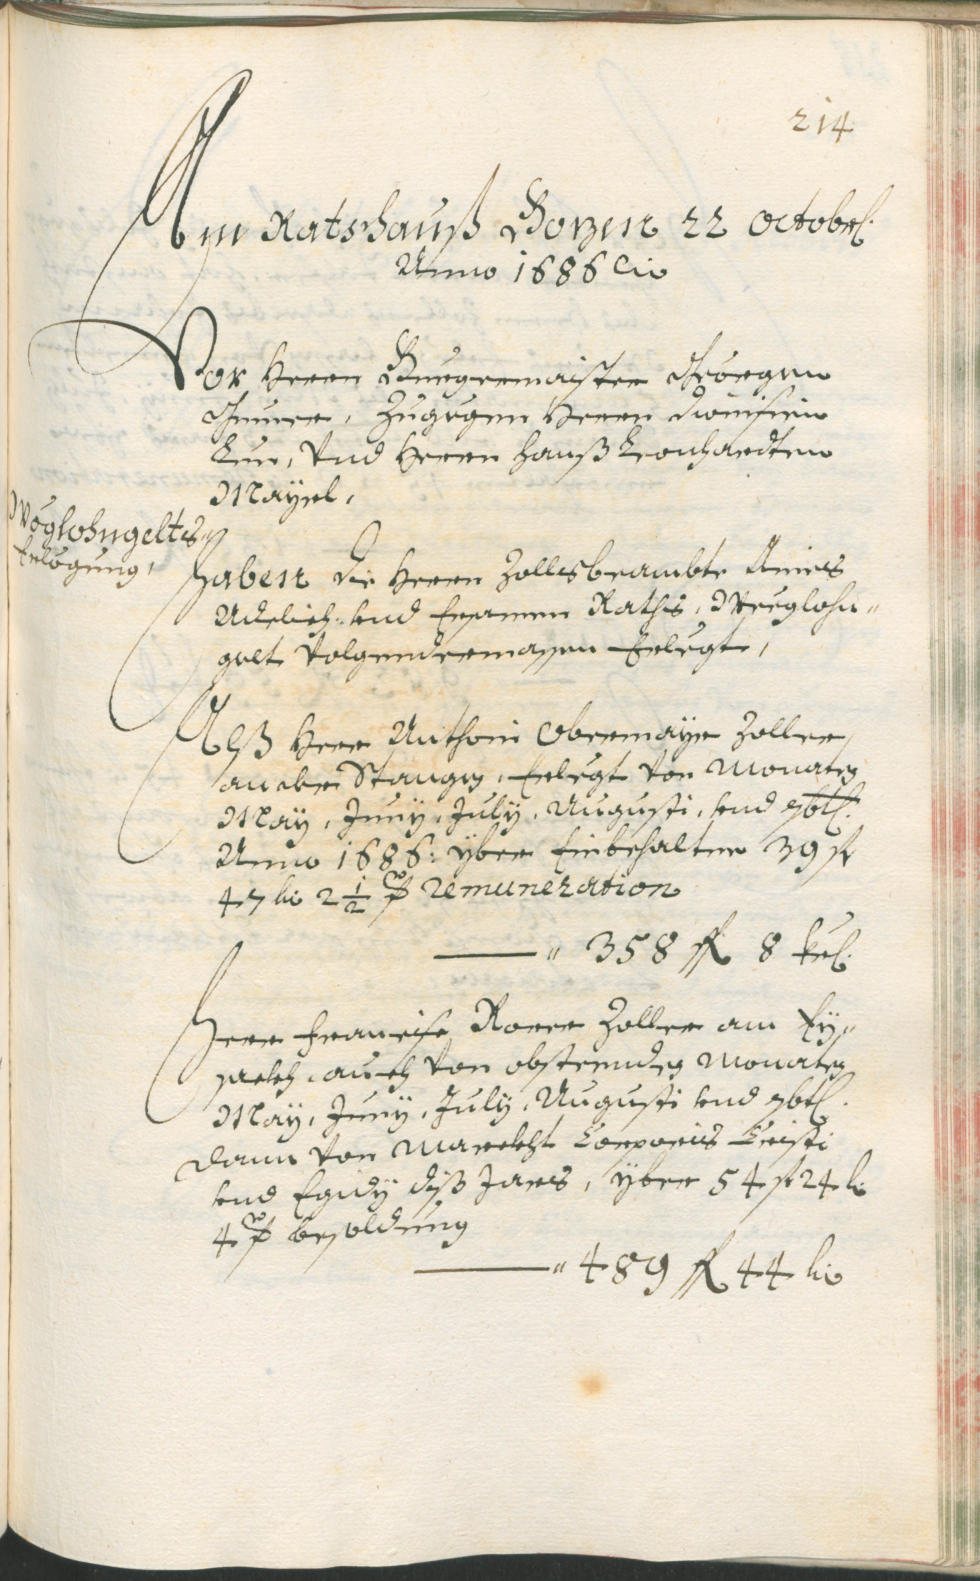 214
Am Ratshauß Bozen 22 Octobr.
Anno 1686 etc
Vor Herrn Burgermaister Georgen
Gumer, Zugegen Herrn Dionisien
Lun, Vnd Herrn Hanß Leonhardten
Mayrl,
Wöglohngelts
Erlögung,
Haben die Herrn Zollsbeambte Aines
Adelich: vnd Ersamen Raths, Weeglohn„
gelt Volgendermassen Erlegt,
Alß Herr Anthoni Obermayr Zoller,
an der Stangen, Erlegt Von Monaten
May, Juny, July, Augusti, vnd 7btr.
Anno 1686: yber Einbehaltne 39 fl
47 kr 2½ remuneration
„ 358 fl 8 kr.
Herr Francisc Rorer Zoller am Ey„
sackh, auch Von obsteenden Monaten
May, Juny, July, Augusti vnd 7btr.
dann Von Marckht Corporis Cristi
vnd Egidy diß Jars, yber 54 fl 24 kr
4 besoldung
„ 489 fl 44 kr